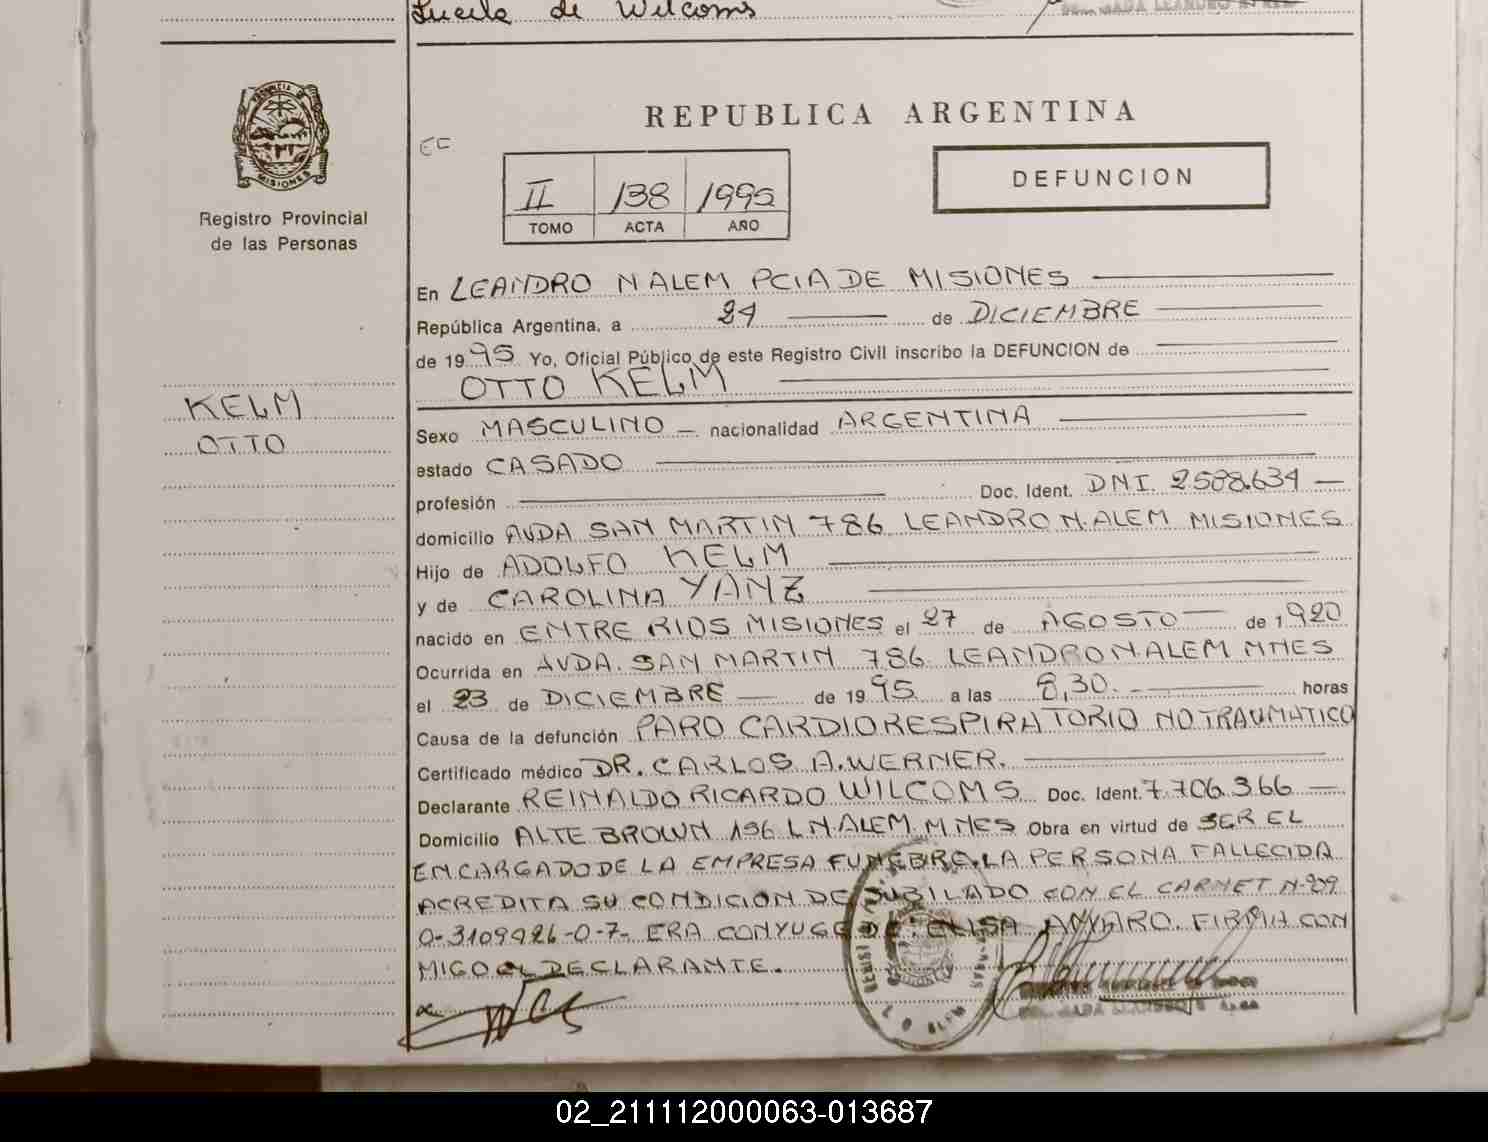 Lucila de Wilcoms
REPUBLICA ARGENTINA
EC
II 138 1995
TOMO ACTA AÑO
DEFUNCION
PROVINCIA DE
MISIONES
Registro Provincial
de las Personas
En LEANDRO N ALEM PCIA DE MISIONES
República Argentina, a 24 de DICIEMBRE
de 1995 Yo, Oficial Público de este Registro Civil inscribo la DEFUNCION de
OTTO KELM
KELM
OTTO
Sexo MASCULINO nacionalidad ARGENTINA
estado CASADO
profesión Doc. Ident. DNI. 2508.634
domicilio AVDA SAN MARTIN 786 LEANDRO N. ALEM MISIONES
Hijo de ADOLFO KELM
y de CAROLINA YANZ
nacido en ENTRE RIOS MISIONES el 27 de AGOSTO de 1920
Ocurrida en AVDA. SAN MARTIN 786 LEANDRO N. ALEM MNES
el 23 de DICIEMBRE de 1995 a las 8,30. horas
Causa de la defunción PARO CARDIORESPIRATORIO NO TRAUMATICO
Certificado médico DR. CARLOS A. WERNER.
Declarante REINALDO RICARDO WILCOMS Doc. Ident. 7.706.366
Domicilio ALTE BROWN 196 L N. ALEM. MNES Obra en virtud de SER EL
ENCARGADO DE LA EMPRESA FUNEBRE. LA PERSONA FALLECIDA
ACREDITA SU CONDICION DE JUBILADO CON EL CARNET N-209
0-3109426-0-7- ERA CONYUGE DE: ELISA AMARO. FIRMA CON
MIGO EL DECLARANTE.
02_211112000063-013687